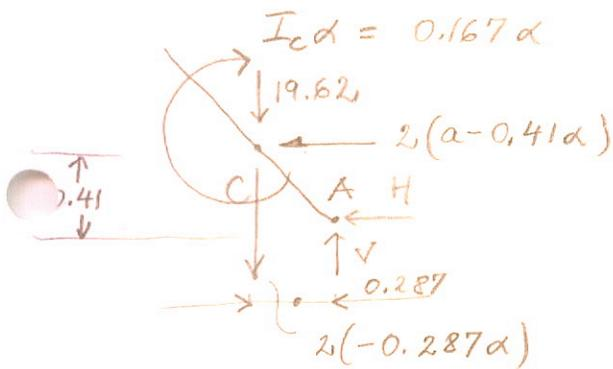 I_c α = 0.167 α
19.62
2(a-0.41α)
C
A
H
.41
V
0.287
2(-0.287α)